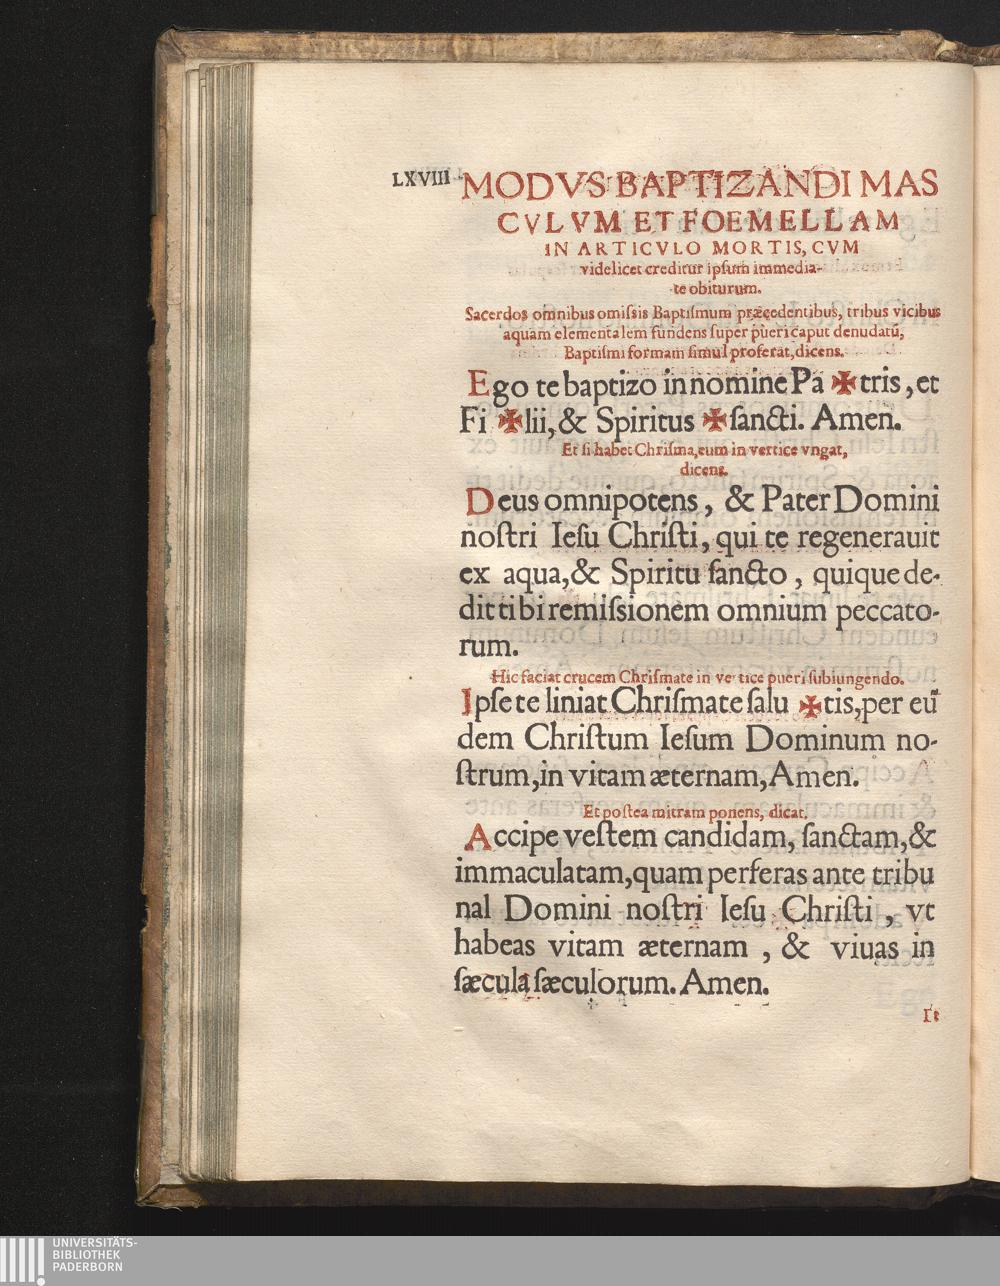 LXVIII
MODVS BAPTIZANDI MAS
CVLVM ET FOEMELLAM
IN ARTICVLO MORTIS, CVM
videlicet creditur ipſum immedia-
te obiturum.
Sacerdos omnibus omiſsis Baptiſmum præcedentibus, tribus vicibus
aquam elementalem fundens ſuper pueri caput denudatū,
Baptiſmi formam ſimul proferat, dicens.
Ego te baptizo in nomine Pa ✠ tris, et
Fi ✠ lii, & Spiritus ✠ ſancti. Amen.
Et ſi habet Chriſma, eum in vertice vngat,
dicens.
Deus omnipotens, & Pater Domini
noſtri Ieſu Chriſti, qui te regenerauit
ex aqua, & Spiritu ſancto, quique de-
dit tibi remiſsionem omnium peccato-
rum.
Hic faciat crucem Chriſmate in vertice pueri ſubiungendo.
Ipſe te liniat Chriſmate ſalu ✠ tis, per eū
dem Chriſtum Ieſum Dominum no-
ſtrum, in vitam æternam, Amen.
Et poſtea mitram ponens, dicat.
Accipe veſtem candidam, ſanctam, &
immaculatam, quam perferas ante tribu
nal Domini noſtri Ieſu Chriſti, vt
habeas vitam æternam, & viuas in
ſæcula ſæculorum. Amen.
It
UNIVERSITÄTS-
BIBLIOTHEK
PADERBORN